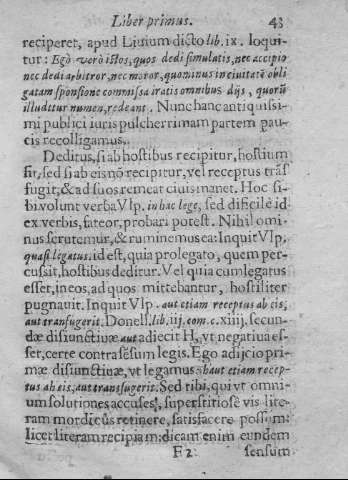 Liber primus. 43
reciperet, apud Liuium dicto lib. ix. loqui-
tur: Egò verò istos, quos dedi simulatis, nec accipio
nec dedi arbitror, nec moror, quo minus in ciuitatē obli
gatam sponsione commissa iratis omnibus dijs, quorū
illuditur numen, redeant. Nunc hanc antiquissi-
mi publici iuris pulcherrimam partem pau-
cis recolligamus.
Deditus, si ab hostibus recipitur, hostium
fit, sed si ab eis nō recipitur, vel receptus trās
fugit, & ad suos remeat ciuis manet. Hoc si-
bi volunt verba Vlp. in hac lege, sed dificile id
ex verbis, fateor, probari potest. Nihil omi-
nus scrutemur, & ruminemus ea: Inquit Vlp.
quasi legatus. id est, quia pro legato, quem per-
cussit, hostibus deditur. Vel quia cum legatus
esset, in eos, ad quos mittebantur, hostiliter
pugnauit. Inquit Vlp. aut etiam receptus ab eis,
aut transfugerit. Donell. lib. iij. com. c. xiiij. secun-
dæ disiunctiuæ aut adiecit H, vt negatiua es-
set, certe contra sēsum legis. Ego adijcio pri-
mæ disiunctiuæ, vt legamus: haut etiam recep-
tus ab eis, aut transfugerit. Sed tibi, qui vt omni-
um solutiones accuses, superstitiosē vis lite-
ram mordicùs retinere, satisfacere possum:
licet literam recipiam: dicam enim eundem
F 2: sensum